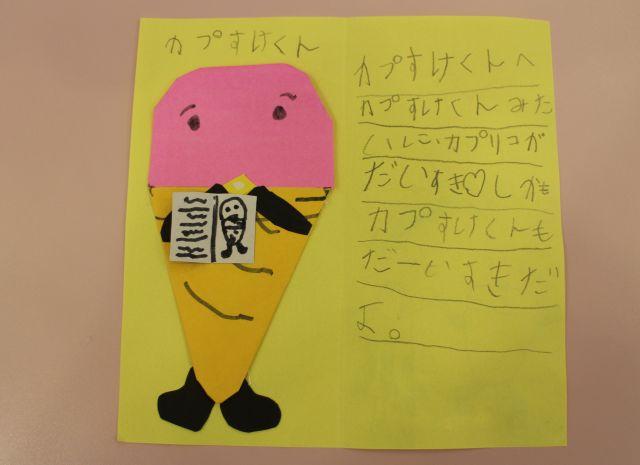 カプすけくん
カプすけくんへ
カプすけくんみた
いにカプリコが
だいすき♡しかも
カプすけくんも
だーいすきだ
よ。